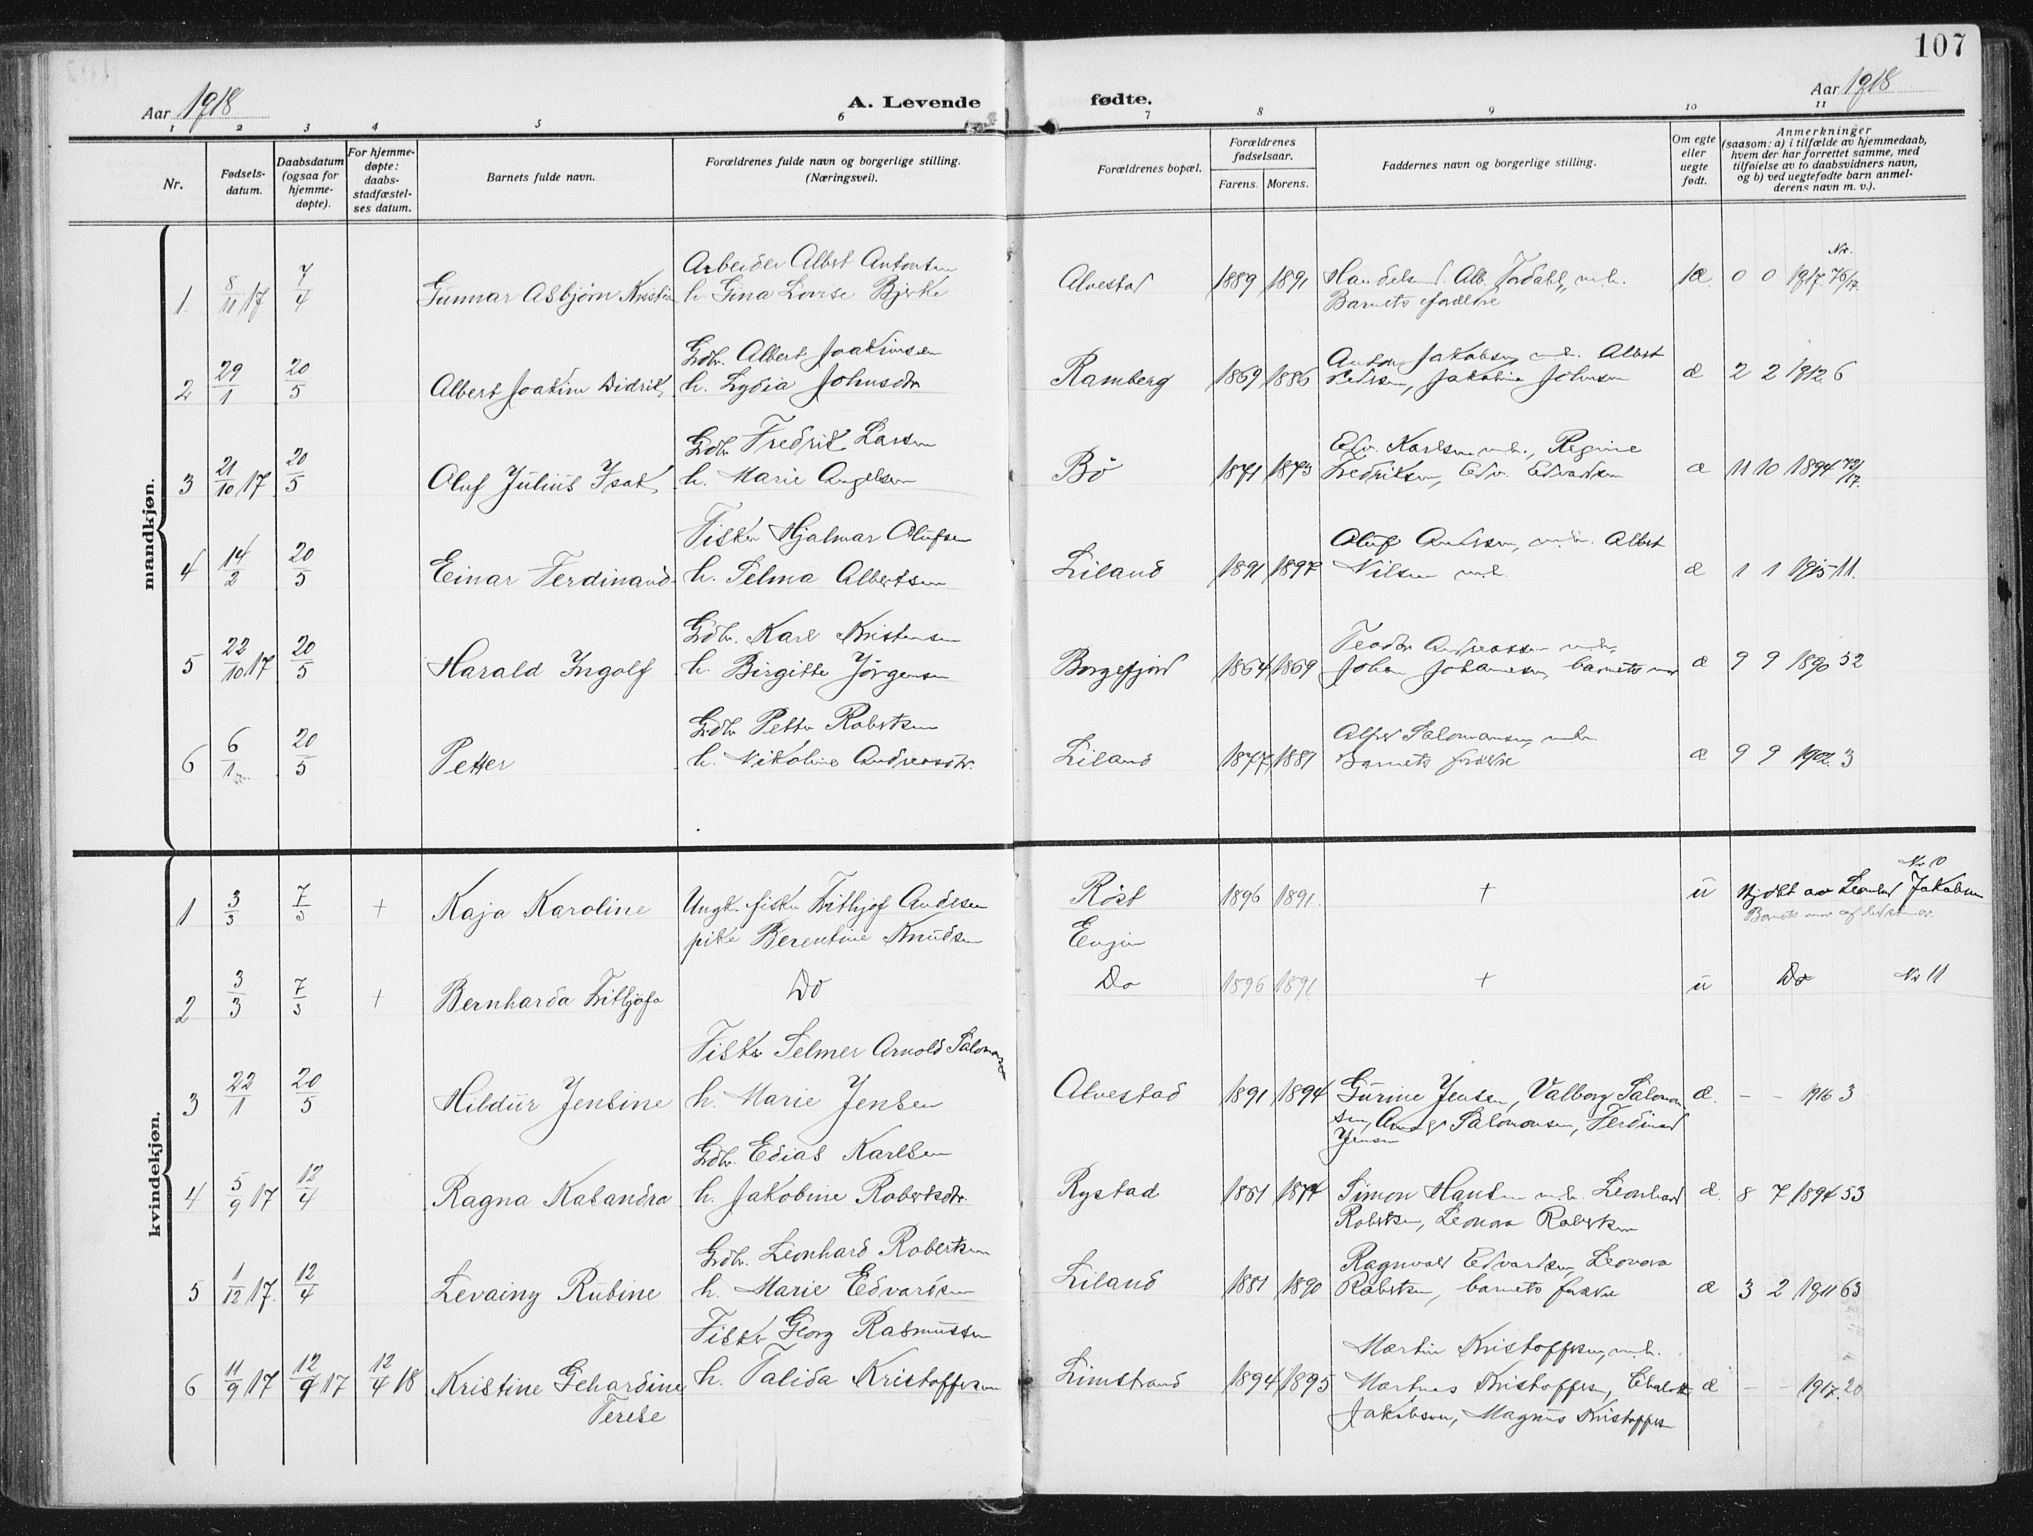 107
Aar 1918
A. Levende fødte.
Aar 1918
1 2 3 4 5 6 7 8 9 10 11
Nr.
Fødsels-
datum.
Daabsdatum
(ogsaa for
hjemme-
døpte).
For hjemme-
døpte:
daabs-
stadfæstel-
ses datum.
Barnets fulde navn.
Forældrenes fulde navn og borgerlige stilling.
(Næringsvei).
Forældrenes bopæl.
Forældrenes
fødselsaar.
Farens. Morens.
Faddernes navn og borgerlige stilling.
Om egte
eller
uegte
født.
Anmerkninger
(saasom: a) i tilfælde av hjemmedaab,
hvem der har forrettet samme, med
tilføielse av to daabsvidners navn,
og b) ved uegtefødte barn anmel-
derens navn m. v.).
mandkjøn.
Arbeider Albert Antonsen
1 8/11 17 7/4 Gunnar Asbjørn Kristian h. Gina Lovise Bjerke Alvestad 1889 1891 Alb. m.h. æ 0 0 1917. Nr. 76/17.
Barnets forældre
Gdbr. Albert Joakimsen
2 29/1 20/5 Albert Joakim Didrik h. Lydia Johnsdtr Ramberg 1869 1886 Anton Jakobsen m.h. Albert æ 2 2 1912. 6
Pedersen, Jakobine Johnsen
Gdbr. Fredrik Larsen
3 21/10 17 20/5 Oluf Julius Isak h. Marie Angelsen Bø 1871 1873 Edv. Karlsen m.h., Regine æ 11 10 1894 72/17.
Fredriksen, Edv. Edvardsen
Fisker Hjalmar Olufsen
4 14/2 20/5 Einar Ferdinand h. Selma Albertsen Liland 1891 1897 Oluf Andersen, m.h. Albert æ 1 1 1915 11.
Nilsen m.h.
Gdbr. Karl Kristensen
5 22/10 17 20/5 Harald Ingolf h. Birgitte Jørgensen Borgefjord 1864 1869 Teodor Andreassen m.h. æ 9 9 1890 52
Johan Johannesen, barnets mor
Gdbr Petter Robertsen
6 6/1 20/5 Petter h. Nikoline Andreasdtr. Liland 1877 1881 Alfred Salomonsen, m.h. æ 9 9 1902. 3
Barnets forældre
kvindekjøn.
1 3/3 7/3 + Kaja Karoline Ungk. fisker Frithjof Andersen Røst 1896 1891. + u Nr 10
Hjdbt av Leonhard Jakobsen
pike Berentine Knudsen Evjen Barnets mor
2 3/3 7/3 + Bernharda Frithjofa Do Do 1896 1891 + u Do Nr 11
Fisker Selmer Arnold Salomonsen
3 22/1 20/5 Hildur Jensine h. Marie Jensen Alvestad 1891 1894 Gurine Jensen, Valborg Salomon æ. - - 1916 3
sen, Salomonsen, Ferdinand
Jensen
Gdbr. Edias Karlsen
4 5/9 17 12/4 Ragna Kasandra h. Jakobine Robertsdtr. Rystad 1874 Simon Hansen m.h. Leonhard æ. 8 7 1894 53
Robertsen, Leonora Robertsen
Gdbr. Leonhard Robertsen
5 1/12 17. 12/4 Levainy Rubine h. Marie Edvardsen Liland 1881 1890 Ragnvald Edvardsen, Leonora æ 3 2 1911 63
Robertsen, barnets forældre
Fisker Georg Rasmussen
6 11/9 17 12/9 17 12/4 18 Kristine Gehardine h. Talida Kristoffersen Limstrand 1894 1895 Martin Kristoffersen, m.h. æ - - 1917. 20
Terese Kristoffersen,
Jakobsen, Magnus Kristoffersen